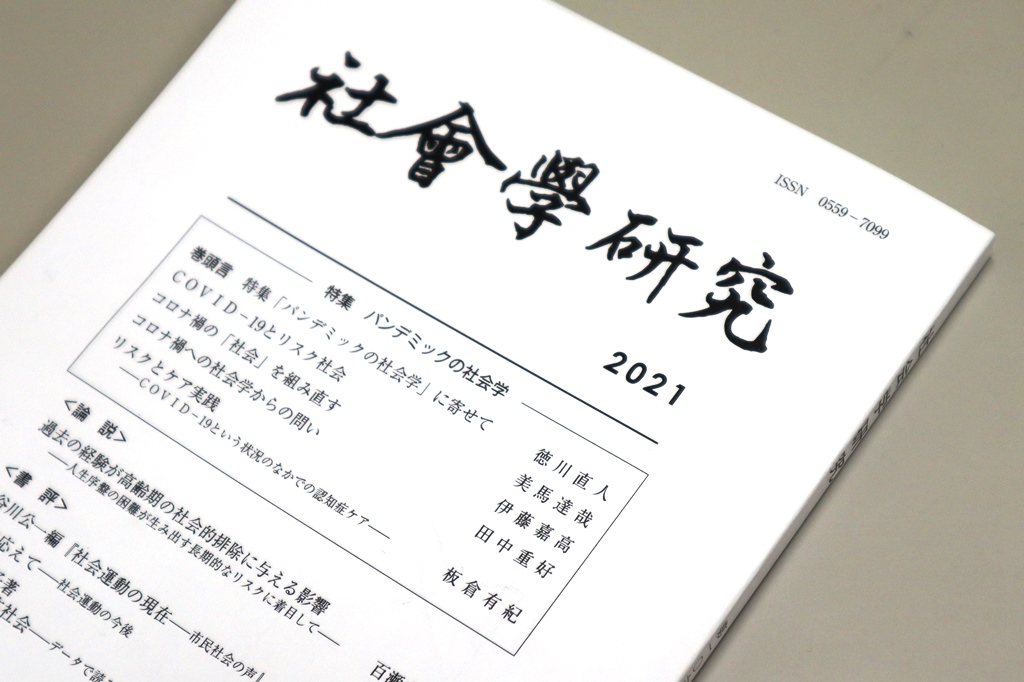 社會學研究
ISSN 0559-7099
2021
特集 パンデミックの社会学
巻頭言 特集「パンデミックの社会学」に寄せて
徳川直人
COVID-19とリスク社会
美馬達哉
コロナ禍の「社会」を組み直す
伊藤嘉高
コロナ禍への社会学からの問い
田中重好
リスクとケア実践
──COVID-19という状況のなかでの認知症ケア──
板倉有紀
〈論 説〉
過去の経験が高齢期の社会的排除に与える影響
──人生序盤の困難が生み出す長期的なリスクに着目して──
百瀬
〈書 評〉
谷川公一編『社会運動の現在──市民社会の声』
応えて──社会運動の今後
著
社会──データで読